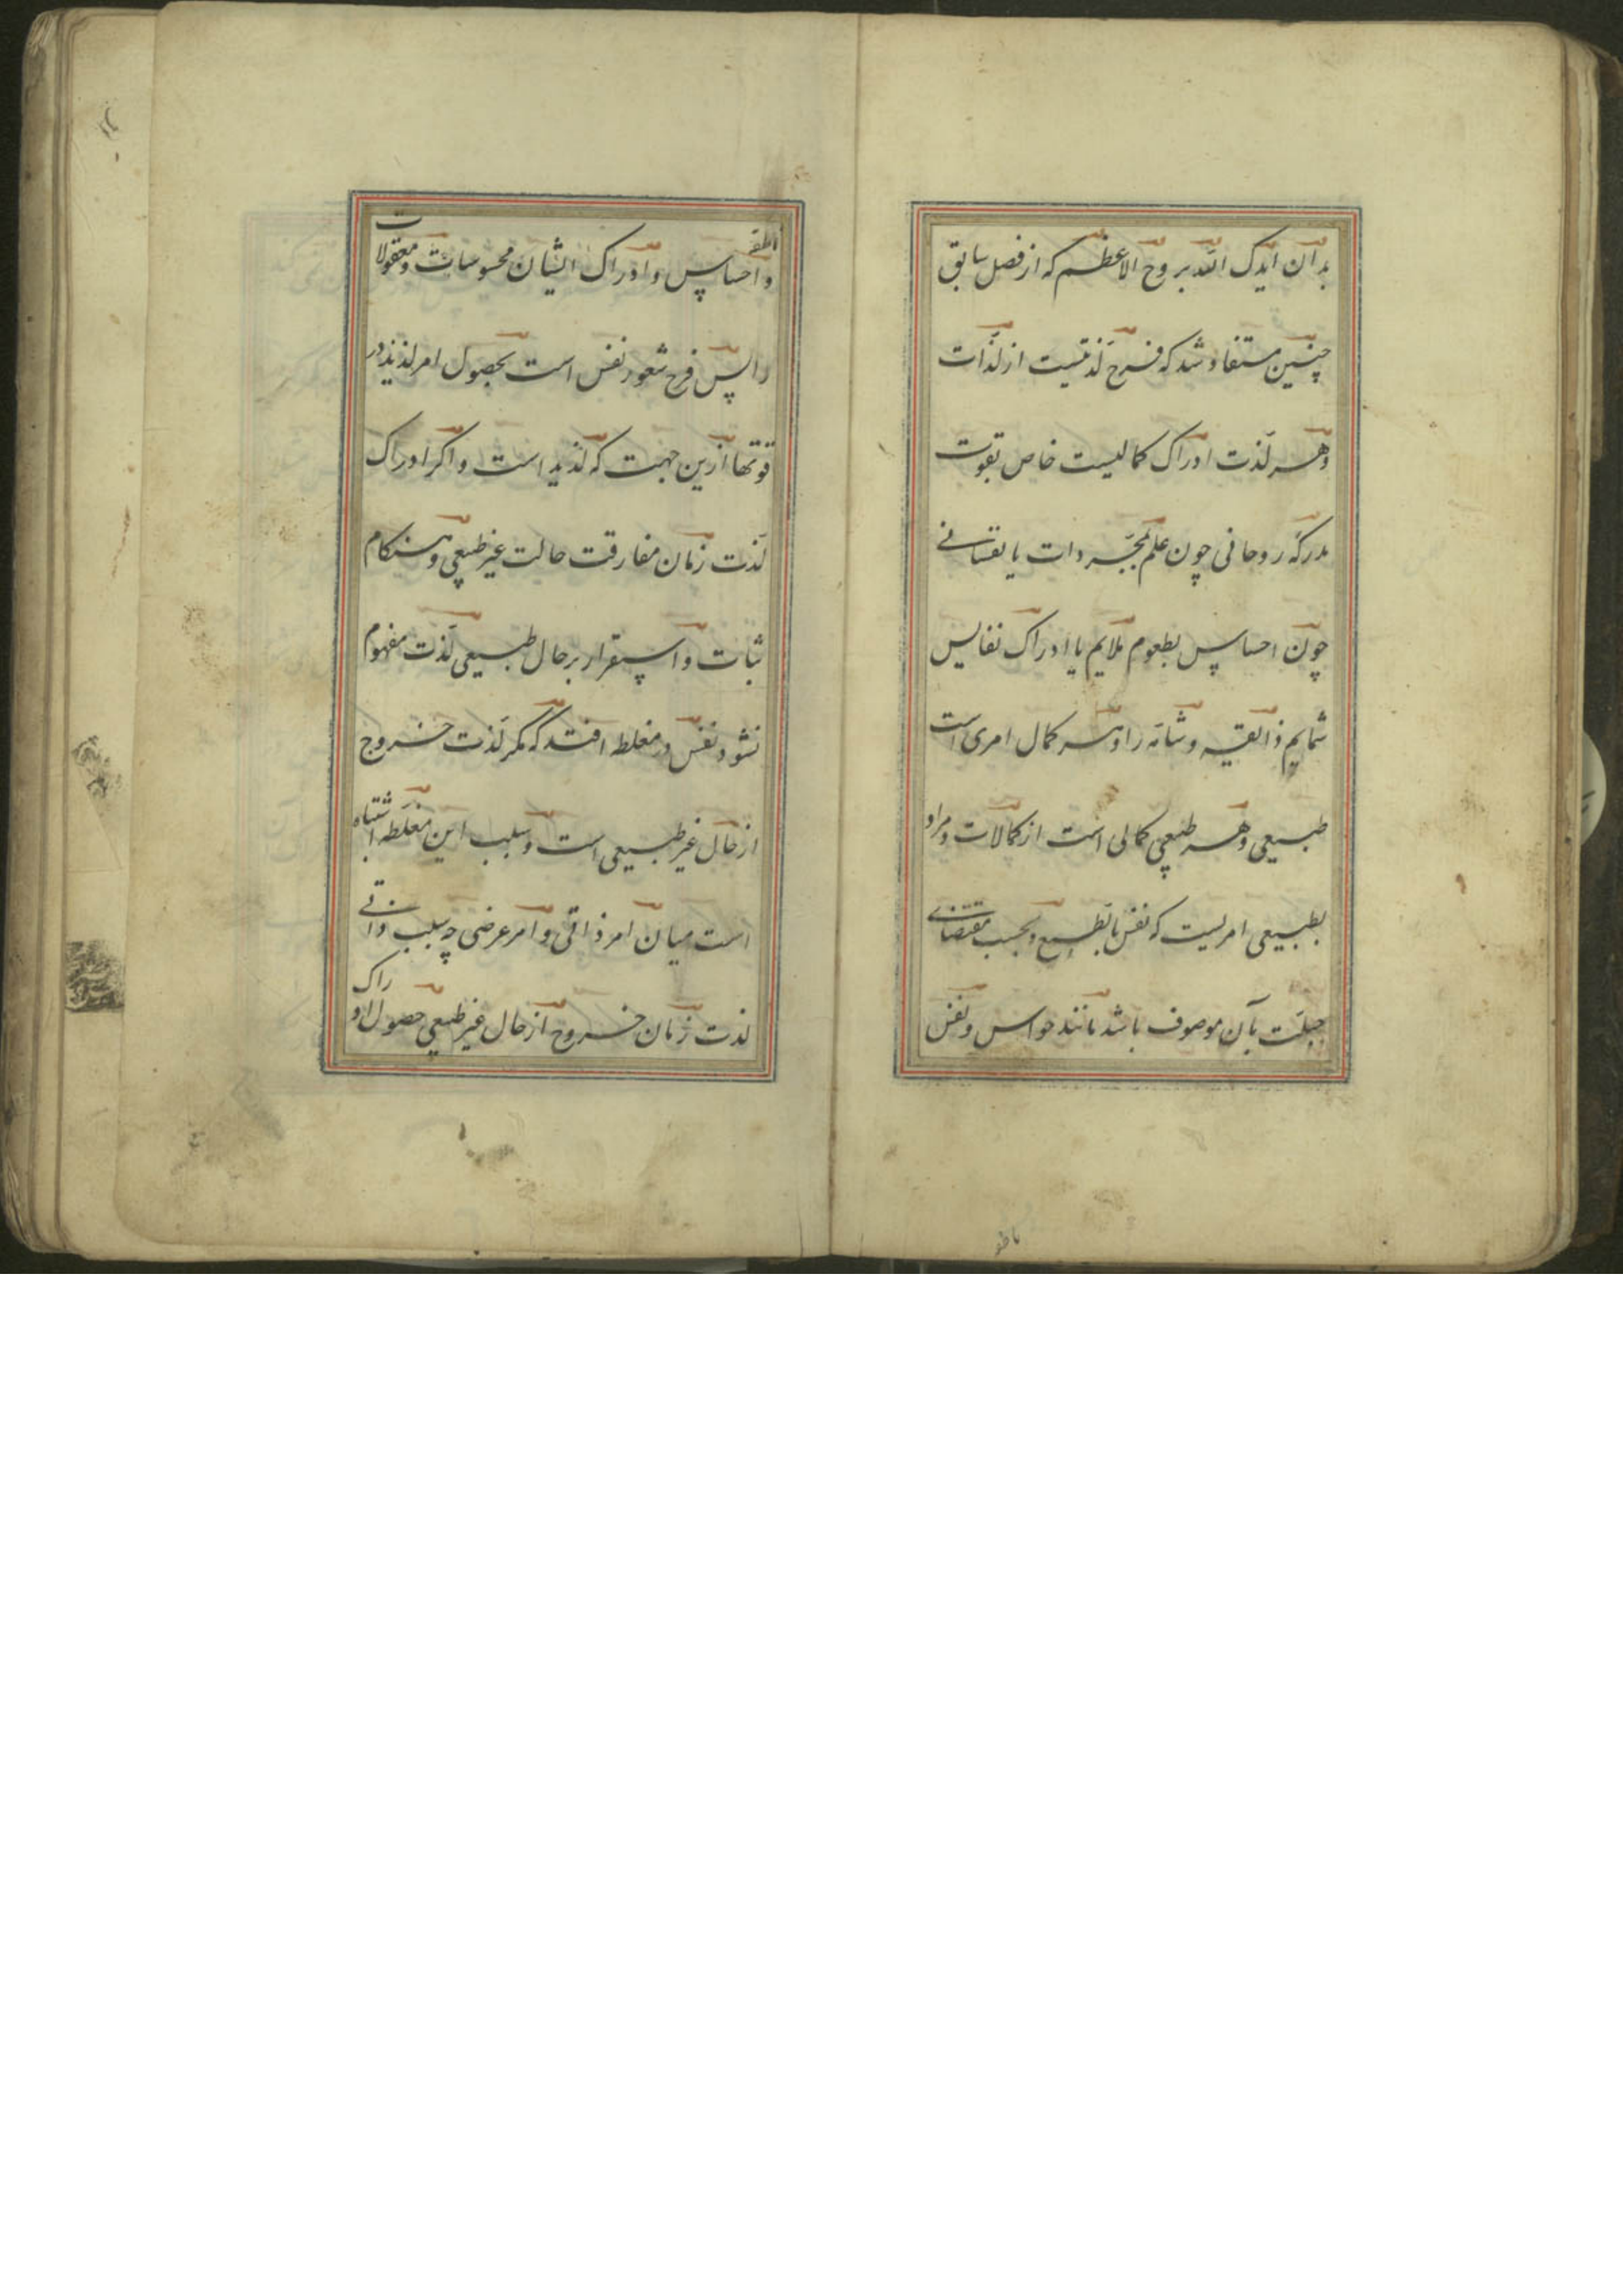 بدان ایدک الله بروح الاعظم که از فصل سابق
چنین مستفاد شد که فرح لذتیست از لذّات
و هر لذت ادراک کمالیست خاص بقوت
مدرکه روحانی چون علم بمجرّدات یا نفسانی
چون احساس بطعوم ملایم یا ادراک نفایس
شمایم ذایقه و شامّه را و هر کمال امری است
طبیعی و هر طبعی کمالی است از کمالات و مراد
بطبیعی امریست که نفس بالطبع و بحسب مقتضای
جبلّت بآن موصوف باشد مانند حواس و نفس
ناطقه
ناطقه
و احساس و ادراک ایشان محسوسات و معقولات
را پس فرح شعور نفس است بحصول امر لذیذ در
قوتها ازین جهت که لذیذ است و اکر ادراک
لذت زمان مفارقت حالت غیر طبعی و هنکام
ثبات و استقرار بر حال طبیعی لذت مفهوم
نشود نفس در مغلطه افتد که مکر لذت خروج
از حال غیر طبیعی است و سبب این مغلطه اشتباه
است میان امر ذاتی و امر عرضی چه سبب ذاتی
لذت زمان خروج از حال غیر طبعی حصول ادراک